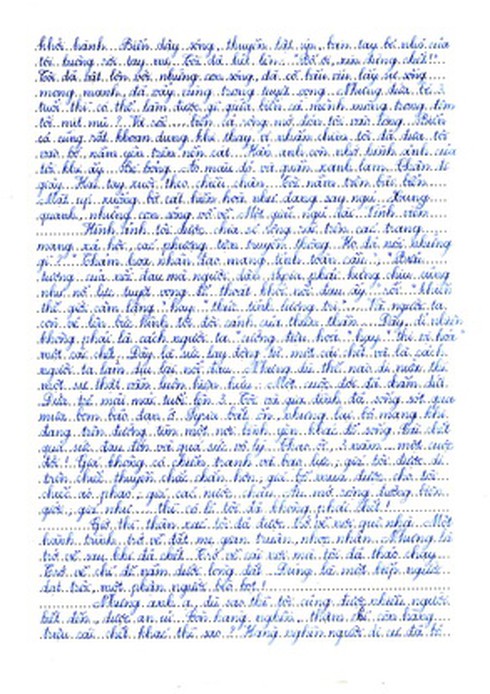 khởi hành. Biển dậy sóng, thuyền lật úp, bàn tay bé nhỏ của
tôi tuông rời tay cha. Tôi đã hét lên: "Bố ơi, xin đừng chết!".
Tôi đã bật lên bởi những con sóng, đã cố bấu víu lấy sự sống
mong manh, đã vẫy vùng trong tuyệt vọng. Nhưng đứa bé 3
tuổi thì có thể làm được gì giữa biển cả mênh mông trong đêm
tối mịt mù? Và rồi... biển là sóng mở đón tôi vào lòng. Biển
cả cũng rất khoan dung khi thay vì nhấn chìm tôi đã đưa tôi
vào bờ nằm yên trên nền cát. Hẳn anh còn nhớ hình ảnh của
tôi khi ấy. Bé bỏng. Áo màu đỏ và quần xanh lam. Chân đi
giày. Hai tay xuôi theo chiều thân. Tôi nằm trên bãi biển.
Mặt úp xuống bờ cát hiền hòa như đang say ngủ. Xung
quanh, những con sóng vỗ về. Một giấc ngủ dài. Vĩnh viễn.
Hình ảnh tôi được chia sẻ rộng rãi trên các trang
mạng xã hội, các phương tiện truyền thông. Họ đã nói những
gì? "Thảm họa nhân đạo mang tính toàn cầu", "Biểu
tượng của nỗi đau mà người dân Syria phải hứng chịu cũng
như nỗ lực tuyệt vọng để thoát khỏi nỗi đau ấy" rồi "khiến
thế giới câm lặng" hay "thức tỉnh lương tri"... Và người ta
còn vẽ lên bức hình tôi đôi cánh của thiên thần. Đấy, dĩ nhiên
không phải là cách người ta "cường điệu hóa" hay "thi vị hóa"
một cái chết. Đấy là sự lay động từ một cái chết và là cách
người ta làm dịu lại nỗi đau. Nhưng dù thế nào đi nữa thì
một sự thật vẫn luôn hiện hữu: Một cuộc đời đã chấm dứt.
Đứa trẻ mãi mãi tuổi lên 3. Tôi và gia đình đã sống sót qua
mưa bom bão đạn ở Syria bất ổn nhưng lại bỏ mạng khi
đang trên đường tìm một nơi bình yên khác để sống. Cái chết
quá sức đau đớn và quá sức vô lý. Thao ôi, 3 năm... một cuộc
đời! Giá không có chiến tranh và bạo lực, giá tôi được đi
trên chiếc thuyền chắc chắn hơn, giá bố mua được cho tôi
chiếc áo phao, giá các nước châu Âu mở rộng đường biên
giới, giá như... thì có lẽ tôi đã không phải chết!
Giờ thì thân xác tôi đã được trở về nơi quê nhà. Một
hành trình trở về đất mẹ gian truân, nhọc nhằn. Nhưng là
trở về sau khi đã chết. Trở về cái nơi mà tôi đã tháo chạy.
Trở về chỉ để nằm dưới lòng đất. Đúng là một kiếp người
dạt trôi, một phận người bèo bọt!
Nhưng anh ạ, dù sao thì tôi cũng được nhiều người
biết đến, được an ủi. Còn hàng nghìn, thậm chí còn hàng
triệu cái chết khác thì sao? Hàng nghìn người di cư đã bỏ